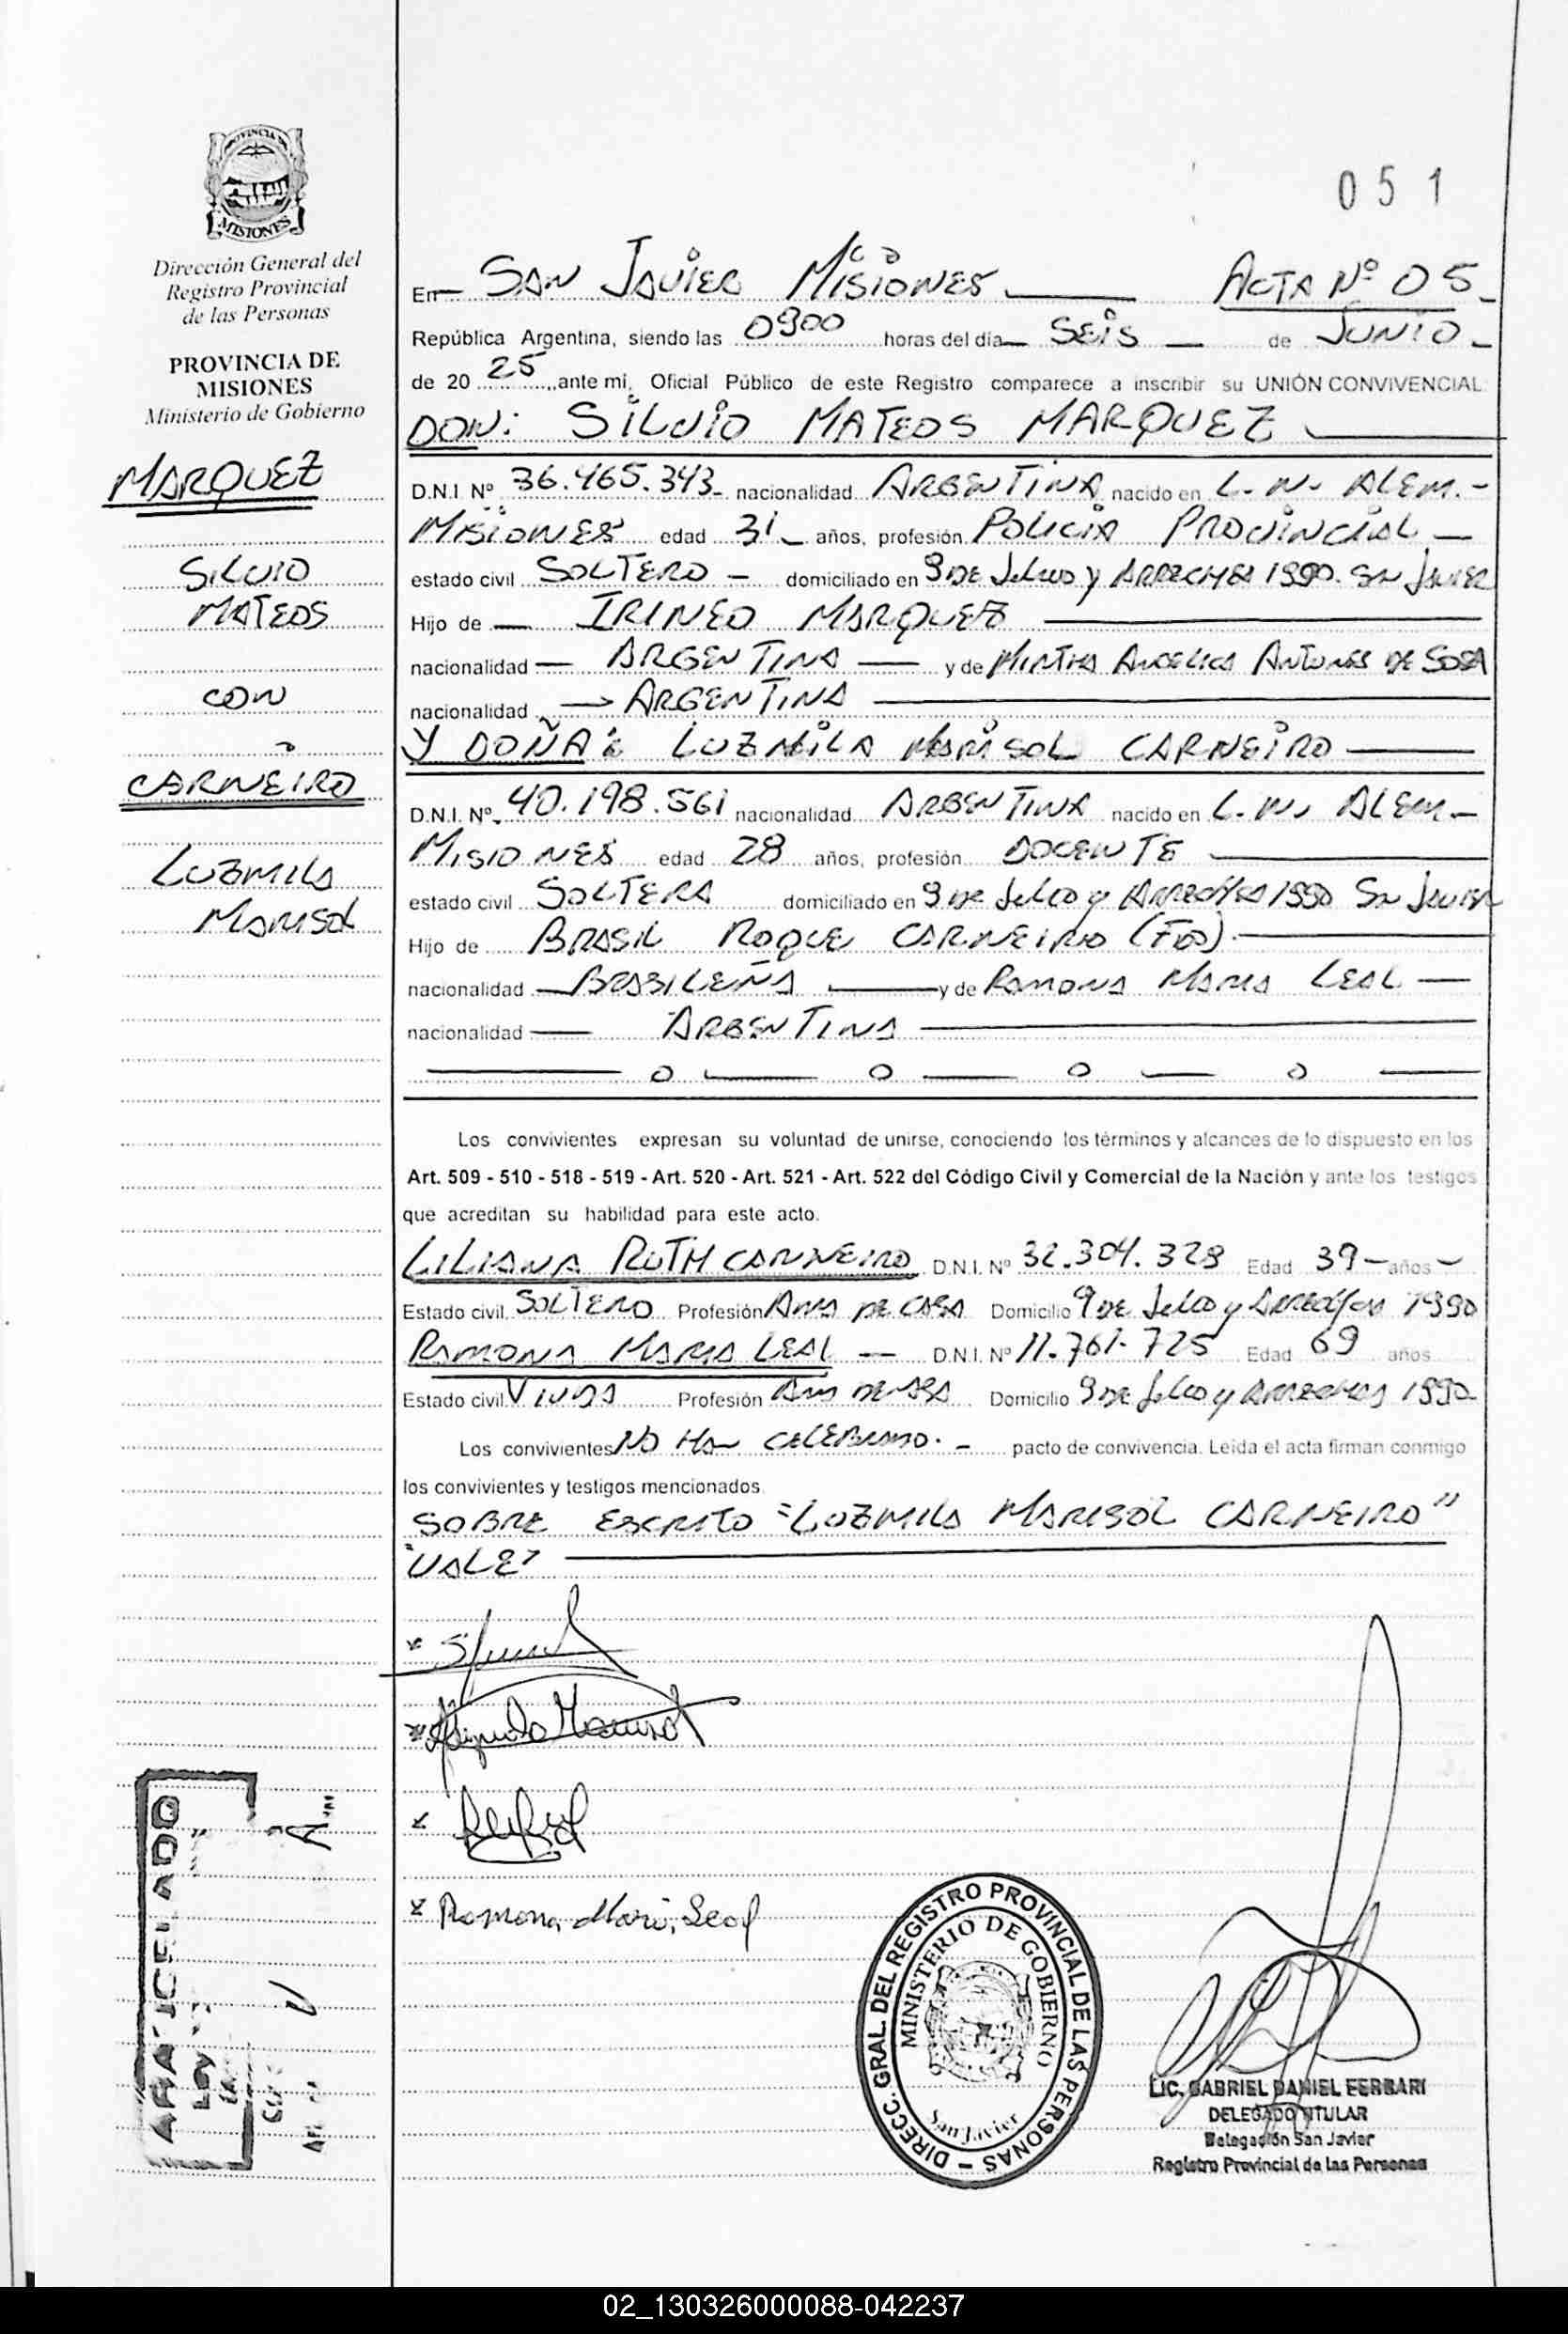 051
PROVINCIA DE
MISIONES
Dirección General del
Registro Provincial
de las Personas
PROVINCIA DE
MISIONES
Ministerio de Gobierno
MARQUEZ
SILVIO
MATEOS
CON
CARNEIRO
LUZMILA
MARISOL
En SAN JAVIER MISIONES ACTA Nº 05
República Argentina, siendo las 0900 horas del día SEIS de JUNIO
de 20 25 ante mi, Oficial Público de este Registro comparece a inscribir su UNIÓN CONVIVENCIAL
DON: SILVIO MATEOS MARQUEZ
D.N.I. Nº 36.465.343 nacionalidad ARGENTINA nacido en L. N. ALEM.-
MISIONES edad 31 años, profesión POLICIA PROVINCIAL
estado civil SOLTERO - domiciliado en 9 DE JULIO y ARRECHEA 1990. SAN JAVIER
Hijo de IRINEO MARQUEZ
nacionalidad ARGENTINA y de MIRTHA ANGELICA ANTUNES DE SOSA
nacionalidad ARGENTINA
Y DOÑA: LUZMILA MARISOL CARNEIRO
D.N.I. Nº 40.198.561 nacionalidad ARGENTINA nacido en L. N. ALEM.-
MISIONES edad 28 años, profesión DOCENTE
estado civil SOLTERA domiciliado en 9 DE JULIO y ARRECHEA 1990 SAN JAVIER
Hijo de BRASIL ROQUE CARNEIRO (FDO).
nacionalidad BRASILEÑA y de RAMONA MARIA LEAL
nacionalidad ARGENTINA
Los convivientes expresan su voluntad de unirse, conociendo los términos y alcances de lo dispuesto en los
Art. 509 - 510 - 518 - 519 - Art. 520 - Art. 521 - Art. 522 del Código Civil y Comercial de la Nación y ante los testigos
que acreditan su habilidad para este acto.
LILIANA RUTH CARNEIRO D.N.I. Nº 32.304.328 Edad 39 años
Estado civil SOLTERO Profesión AMA DE CASA Domicilio 9 DE JULIO y ARRECHEA 1990
RAMONA MARIA LEAL D.N.I. Nº 11.761.725 Edad 69 años
Estado civil VIUDA Profesión AMA DE CASA Domicilio 9 DE JULIO y ARRECHEA 1990
Los convivientes NO HAN CELEBRADO. - pacto de convivencia. Leída el acta firman conmigo
los convivientes y testigos mencionados.
SOBRE ESCRITO "LUZMILA MARISOL CARNEIRO"
"VALE"
Ramona Mari Leal
DIRECC. GRAL. DEL REGISTRO PROVINCIAL DE LAS PERSONAS
MINISTERIO DE GOBIERNO
San Javier
LIC. GABRIEL DANIEL FERRARI
DELEGADO TITULAR
Delegación San Javier
Registro Provincial de las Personas
02_130326000088-042237